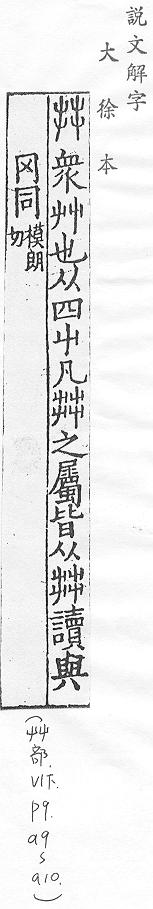 說文解字
大徐本
茻衆艸也从四屮凡茻之屬皆从茻讀與
冈同模朗
切
(茻部. V1下. P9. a9~a10.)